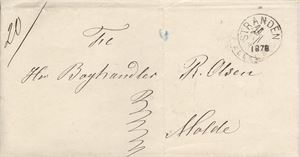 20/
STRANDEN
1878
Fru
Hr. Boghandler R. Olsen
Molde